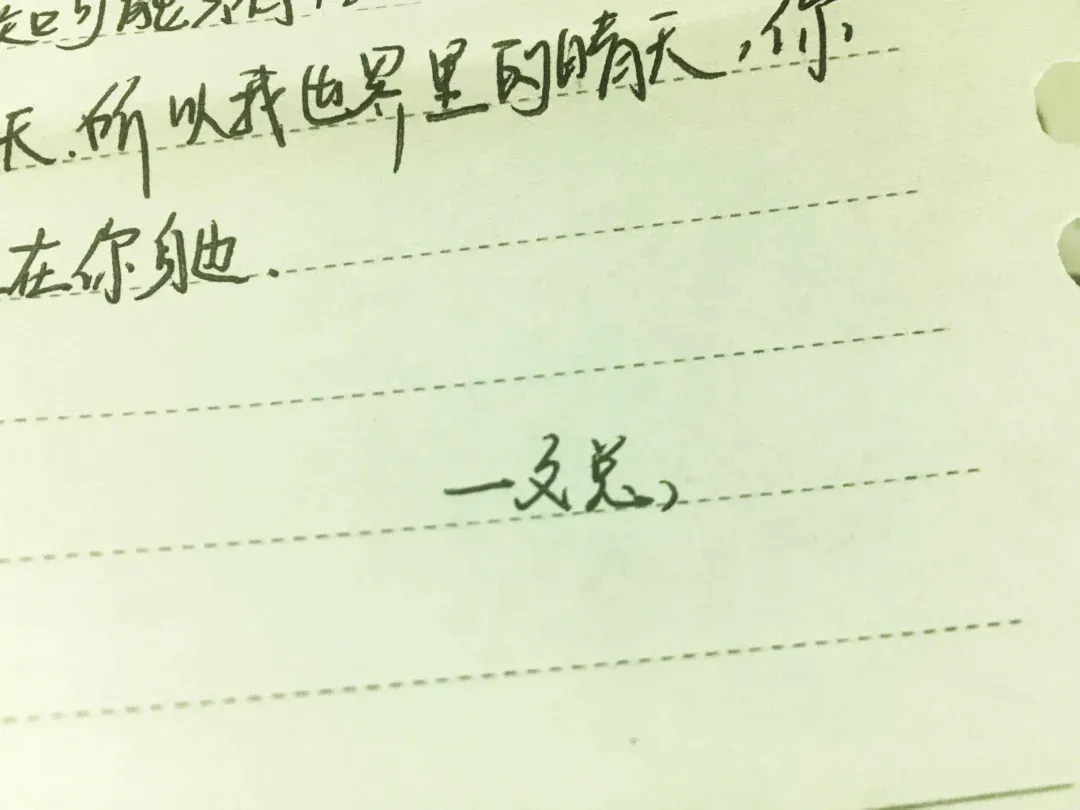 可能
天.所以我世界里的晴天,你
在你身边.
一文总